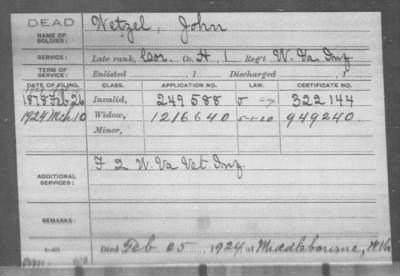 DEAD
NAME OF SOLDIER: Wetzel, John
SERVICE: Late rank, Cor. Co. H, 1 Reg't W. Va. Inf.
TERM OF SERVICE: Enlisted , 1 Discharged , 1
DATE OF FILING. CLASS. APPLICATION NO. LAW. CERTIFICATE NO.
1878 Feb. 26 Invalid, 249588 322144
1924 Mch 10 Widow, 1216640 5-1-20 949240
Minor,
ADDITIONAL SERVICES: F 2 W. Va Vet Inf.
REMARKS:
Died Feb 05, 1924 at Middlebourne, W. Va